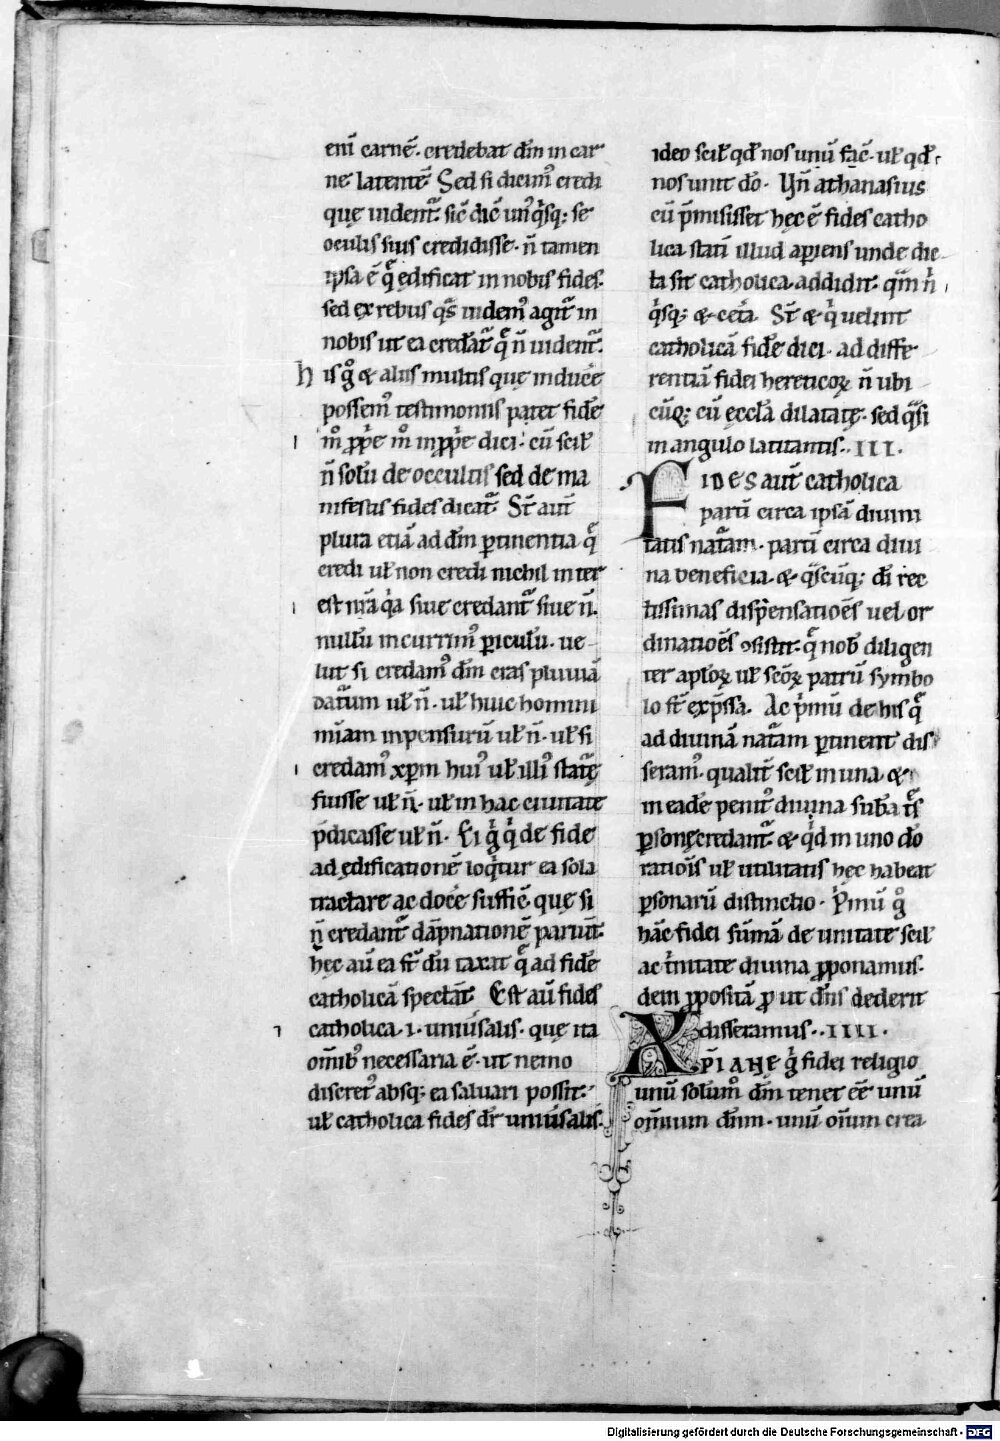 enī carnē. credebat dm̄ in car
ne latentē. Sed si dicimꝰ credi
quę uident᷑. sic̄ dic̄ unꝰ q̇sq; se
oculis suis credidisse. n̄ tamen
ipsa ē q̄ ędificat in nobis fides.
sed ex rebus q̄s uidemꝰ agit᷑ in
nobis ut ea credāt᷑ q̄ n̄ uident᷑.
his gͦ & aliis multis quę inducē
possemꝰ testimoniis patet fidē
mͦ ꝓpͥe mͦ inꝓpͥe dici. cū scil̄
n̄ solū de occultis sed de ma
nifestis fides dicat᷑. St̄ aut̄
plura etiā ad dm̄ ꝑtinentia q̄
credi ul̄ non credi nichil inter
est nr̄a q̇a siue credant᷑ siue n̄.
nullū incurrimꝰ ꝑiculū. ue
lut si credamꝰ dm̄ cras pluuiā
daturum ul̄ n̄. ul̄ huic homini
mīam inpensurū ul̄ n̄. ul̄ si
credamꝰ xp̄m huiꝰ ul̄ illiꝰ statᷓę
fuisse ul̄ n̄. ul̄ in hac ciuitate
p̄dicasse ul̄ n̄. Ei gͦ q̇ de fide
ad ędificationē loq̇tur ea sola
tractare ac docē̄ suffic̄. quę si
n̄ credant᷑ dāpnationē pariunt.
hęc aū ea st̄ dū taxat q̄ ad fidē
catholicā spectāt. Est aū fides
catholica .i. uniūsalis. quę ita
om̄ibꝰ necessaria ē. ut nemo
discretꝰ absq; ea saluari possit.
ul̄ catholica fides dr̄ uniūsalis.
ideo scil̄ qd̄ nos unū fac̄. ul̄ qd̄
nos unit dō. Un̄ athanasius
cū p̄misisset hęc ē fides catho
lica. statī illud aperiens unde dic
ta sit catholica. addidit. q̄m n̄
q̇sq; &cet̄a. St̄ & q̇ uelint
catholicā fidē dici. ad diffe
rentiā fidei hereticoꝝ n̄ ubi
cūq; cū ęccłā dilatatę. sed q̄si
in angulo latitantis. III.
FIDES aut̄ catholica
partī circa ipsā diuini
tatis nat᷑am. partī circa diui
na beneficia. & q̄scūq; dī rec
tissimas dispensatioēs uel or
dinatioēs ꝯsistit. q̄ nob̄ diligen
ter apl̄oꝝ ul̄ scōꝝ patrū symbo
lo st̄ exp̄ssa. Ac pͥmū de his q̄
ad diuinā nat᷑am ꝑtinent dis
seramꝰ. qualit̄ scil̄ in una &
in eadē penitꝰ diuina sub̄a t̄s
ꝑsonę credant᷑. & q̇d in uno dō
ratiois̄ ul̄ utilitatis hęc habeat
ꝑsonarū distinctio. Pͥmū gͦ
hāc fidei sūmā de unitate scil̄
ac t̄nitate diuina ꝓponamus.
dem ꝓpositā ꝓ ut dn̄s dederit
disseramus. IIII.
XPIANE gͦ fidei religio
unū solūmͦ dm̄ tenet eē unū
om̄ium dn̄m. unū om̄ium crea
Digitalisierung gefördert durch die Deutsche Forschungsgemeinschaft - DFG